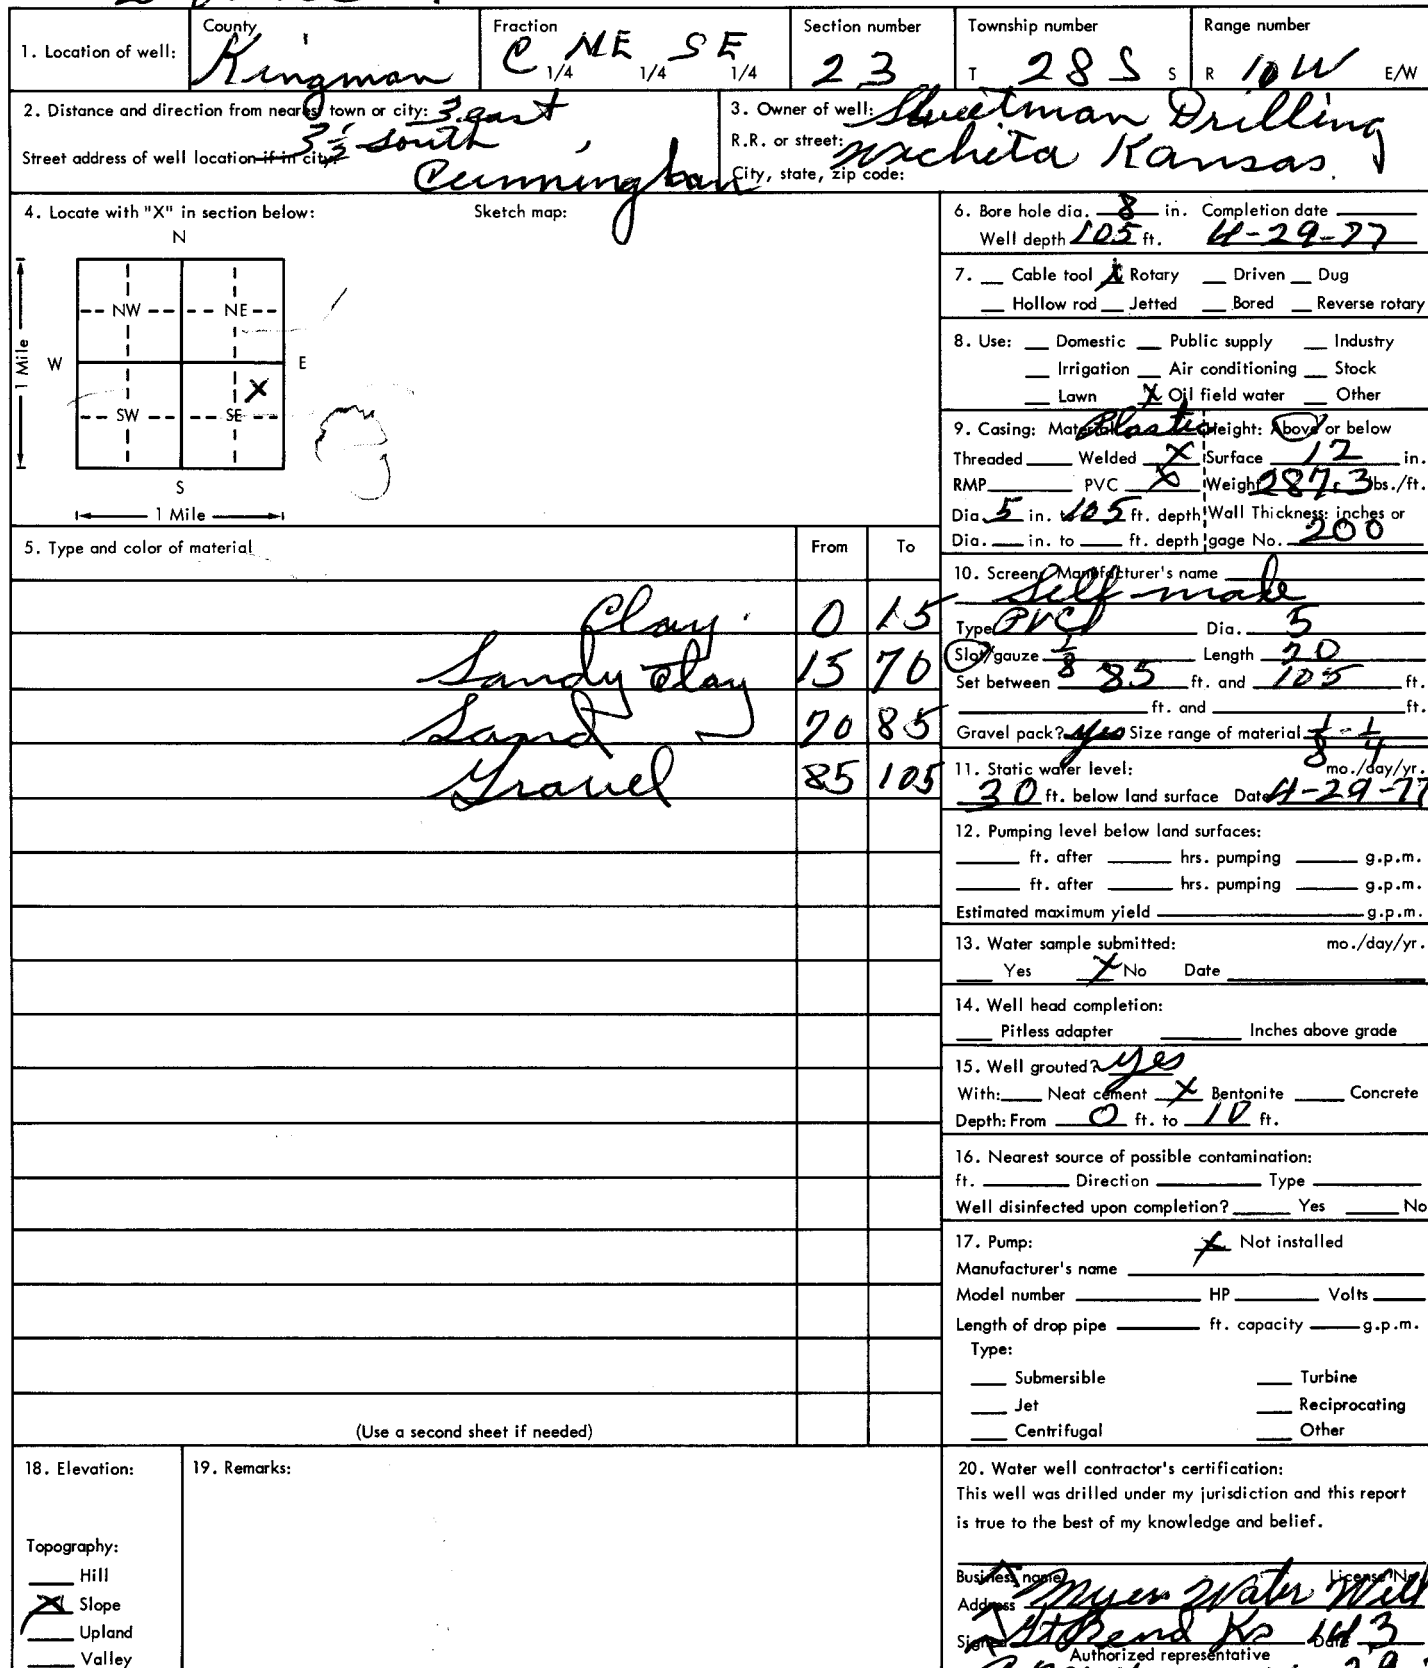 1. Location of well: County Kingman Fraction C 1/4 NE 1/4 SE 1/4 Section number 23 Township number T 28 S S Range number R 10 W E/W
2. Distance and direction from nearest town or city: 3 east
3 1/2 south
Street address of well location if in city:
Cunningham
3. Owner of well: Sweetman Drilling
R.R. or street:
Wichita Kansas.
City, state, zip code:
4. Locate with "X" in section below: Sketch map:
N
NW NE
W E
1 Mile
X
SW SE
S
1 Mile
5. Type and color of material From To
Clay 0 15
Sandy Clay 15 70
Sand 70 85
Gravel 85 105
(Use a second sheet if needed)
6. Bore hole dia. 8 in. Completion date
Well depth 105 ft. 4-29-77
7. Cable tool X Rotary Driven Dug
Hollow rod Jetted Bored Reverse rotary
8. Use: Domestic Public supply Industry
Irrigation Air conditioning Stock
Lawn X Oil field water Other
9. Casing: Material Plastic Height: Above or below
Threaded Welded X Surface 12 in.
RMP PVC X Weight 287.3 lbs./ft.
Dia. 5 in. to 105 ft. depth Wall Thickness: inches or
Dia. in. to ft. depth gage No. 200
10. Screen: Manufacturer's name
Self made
Type PVC Dia. 5
Slot/gauze 1/8 Length 20
Set between 85 ft. and 105 ft.
ft. and ft.
Gravel pack? yes Size range of material 1/8 - 1/4
11. Static water level: mo./day/yr.
30 ft. below land surface Date 4-29-77
12. Pumping level below land surfaces:
ft. after hrs. pumping g.p.m.
ft. after hrs. pumping g.p.m.
Estimated maximum yield g.p.m.
13. Water sample submitted: mo./day/yr.
Yes X No Date
14. Well head completion:
Pitless adapter Inches above grade
15. Well grouted? yes
With: Neat cement X Bentonite Concrete
Depth: From 0 ft. to 10 ft.
16. Nearest source of possible contamination:
ft. Direction Type
Well disinfected upon completion? Yes No
17. Pump: X Not installed
Manufacturer's name
Model number HP Volts
Length of drop pipe ft. capacity g.p.m.
Type:
Submersible Turbine
Jet Reciprocating
Centrifugal Other
18. Elevation:
Topography:
Hill
X Slope
Upland
Valley
19. Remarks:
20. Water well contractor's certification:
This well was drilled under my jurisdiction and this report
is true to the best of my knowledge and belief.
Business name License No.
Address Myers Water Well
Gt Bend Ks 143
Signed Date
Authorized representative